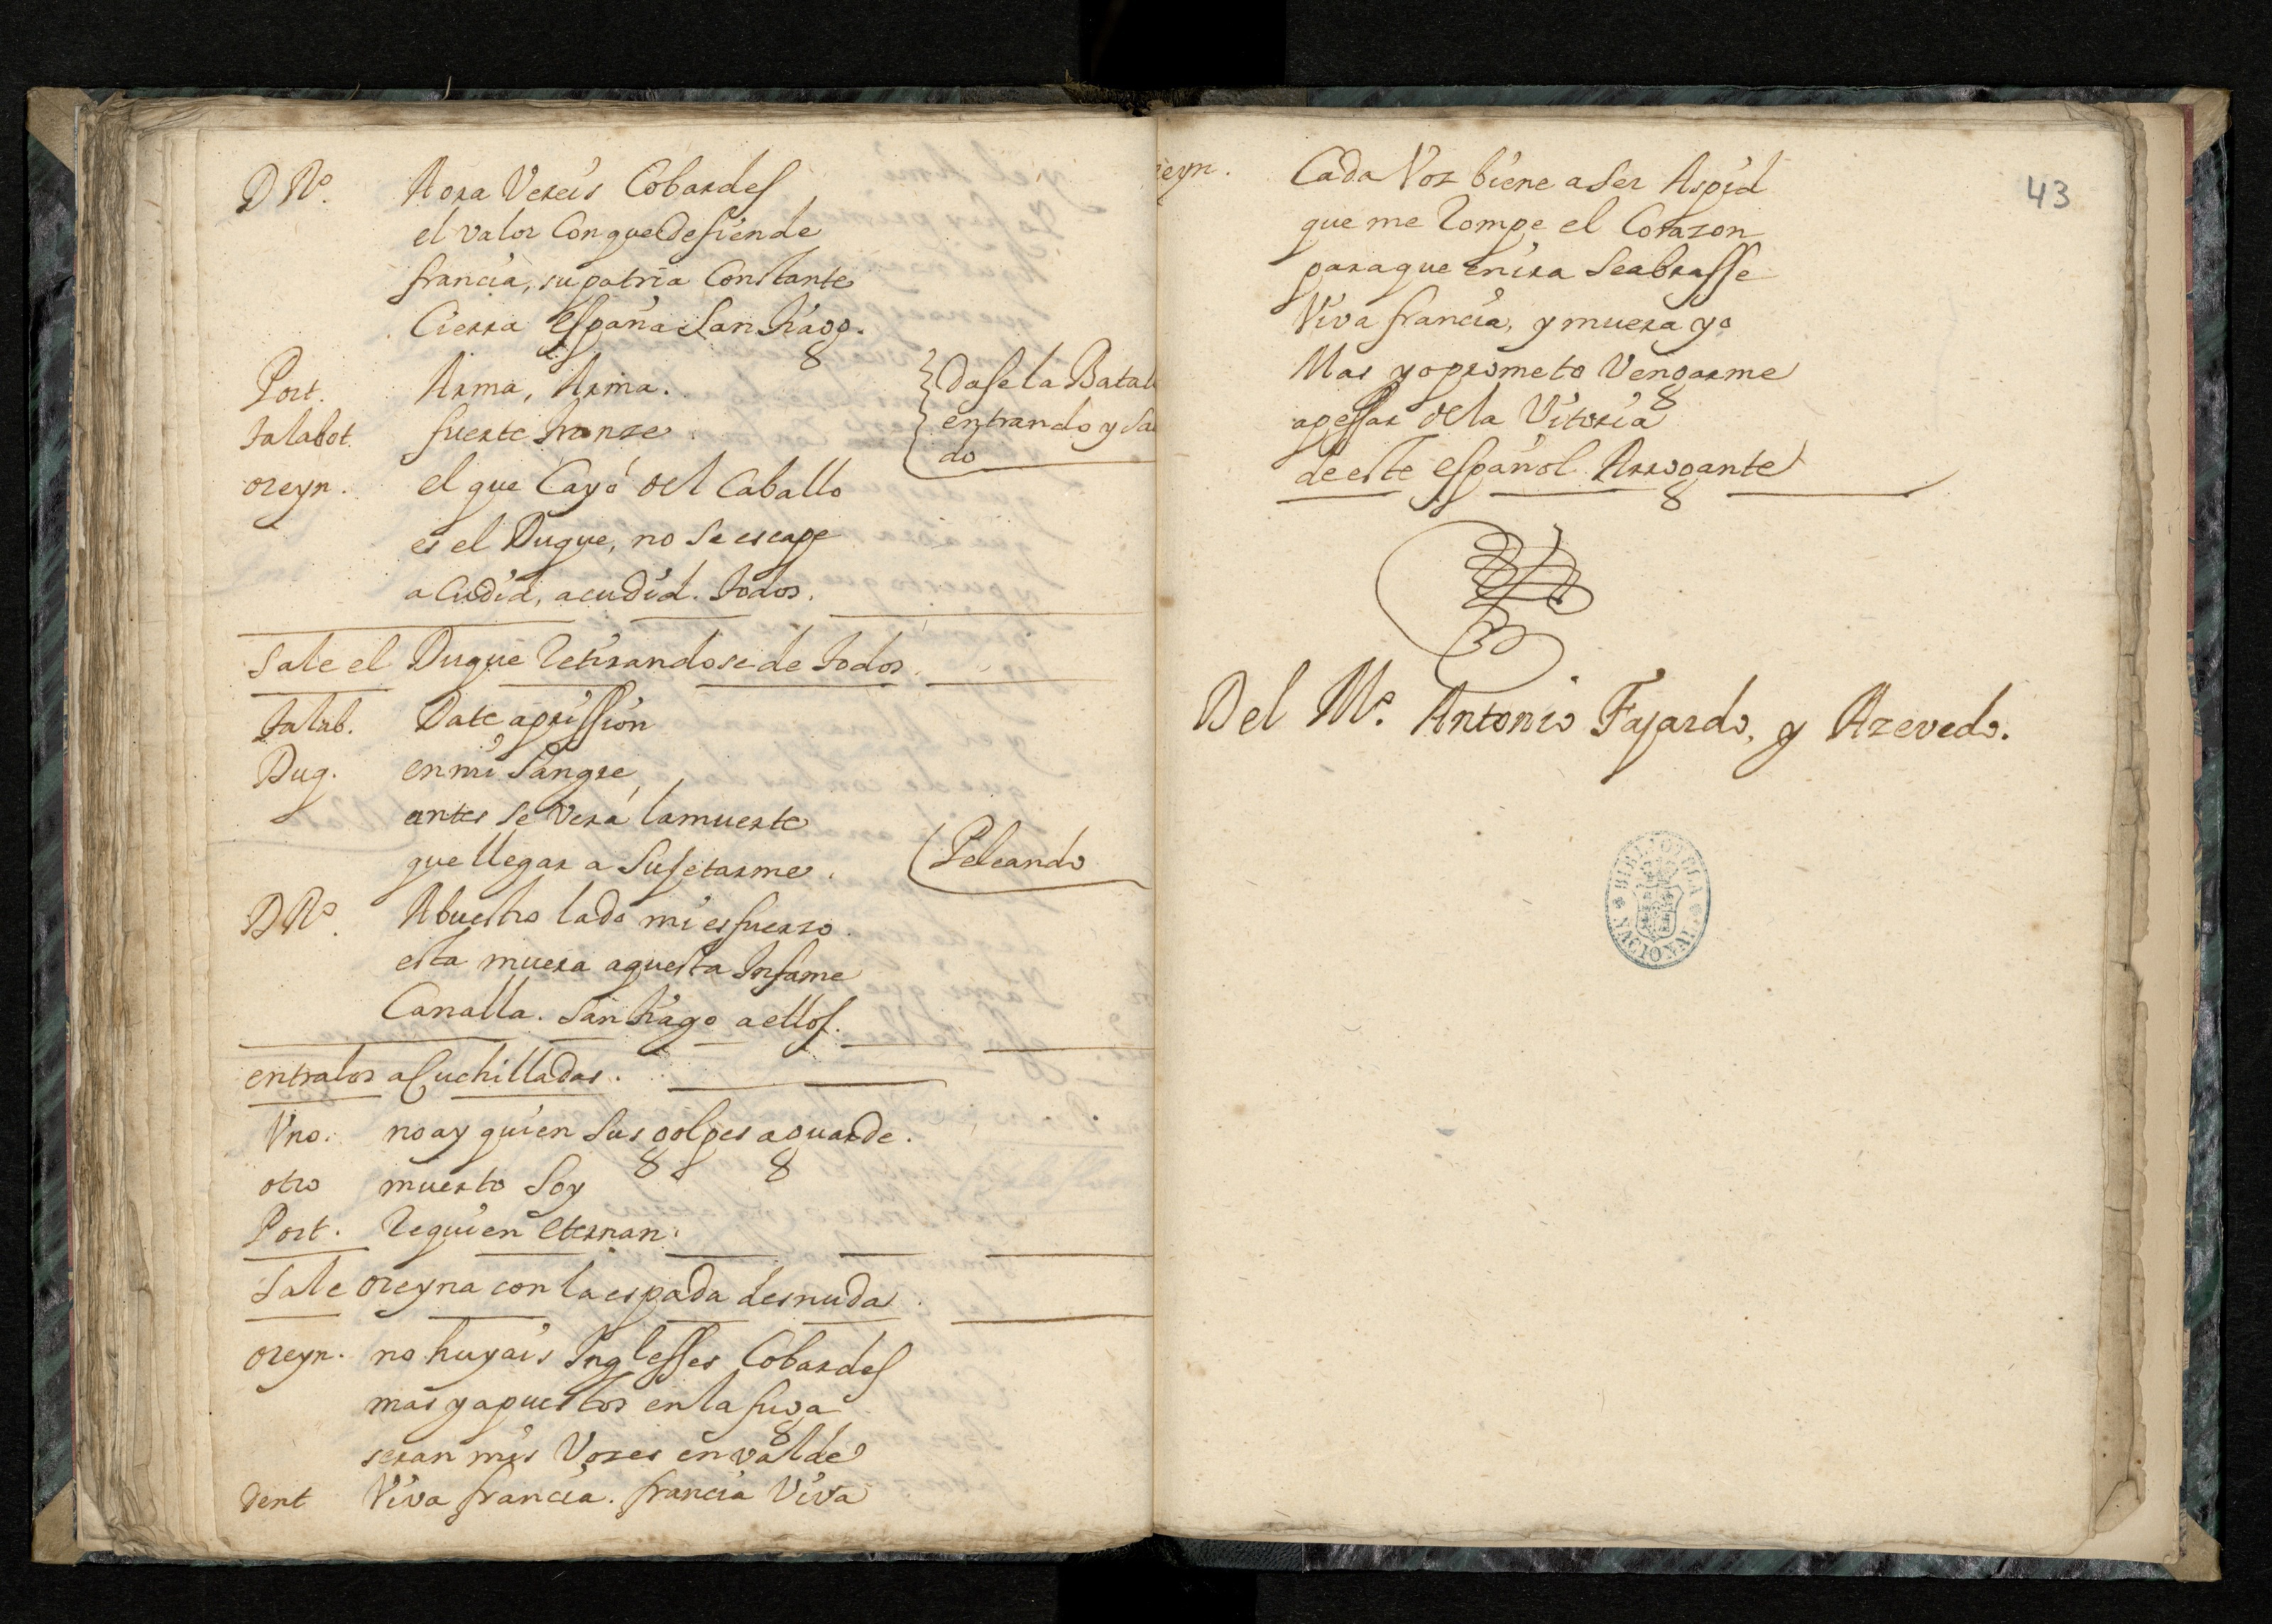 D Rº. Aora Vereis Cobardes
el valor Conque defiende
francia, su patria Constante
Cierra España San tiago.
Port. Arma, Arma. {dase la Batal
Talabot. fuerte tranze. entrando y sa
do
oreyn. el que Cayó del Caballo
es el Duque, no se escape
acudid, acudid. todos.
Sale el Duque retirandose de todos.
Talab. Date aprission
Duq. en mi Sangre,
antes se verá la muerte
que llegar a Sujetarme. (Peleando
D Rº. A buestro lado mi esfuerzo
esta muera aquesta Infame
Canalla. San tiago a ellos.
entralos a Cuchilladas.
Vno. no ay quien Sus golpes aguarde.
otro muerto Soy
Port. requien eternan.
Sale oreyna con la espada desnuda.
oreyn. no huyais Inglesses Cobardes
mas ya puestos en la fuga
seran mis Vozes en valde
dent Viva francia. francia Viva
reyn. Cada Voz biene a Ser Aspid
que me rompe el Corazon
para que en ira Se abrasse
Viva francia, y muera yo
Mas yo prometo Vengarme
apessar de la Vitoria
de este español Arrogante
43
Del Mº. Antonio Fajardo, y Azevedo.
BIBLIOTECA NACIONAL